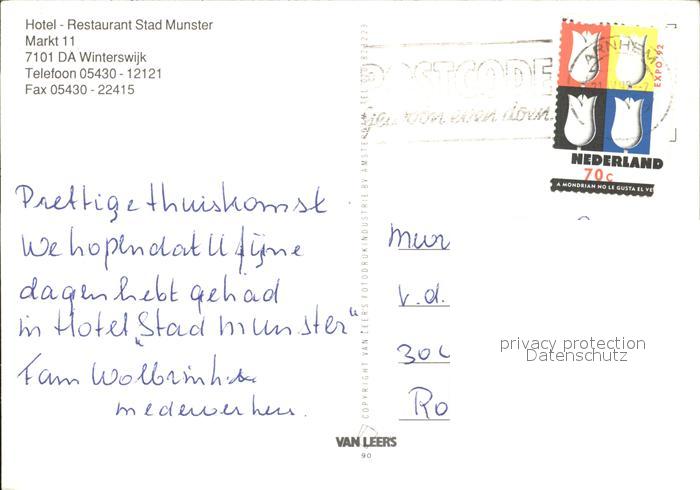 Hotel - Restaurant Stad Munster
Markt 11
7101 DA Winterswijk
Telefoon 05430 - 12121
Fax 05430 - 22415
POSTCODE
ARNHEM
EXPO '92
NEDERLAND
70 c
A MONDRIAN NO LE GUSTA EL VE
Prettige thuiskomst
We hopen dat U fijne
dagen hebt gehad
in Hotel „Stad Munster"
Fam
medewerkers.
COPYRIGHT VAN LEERS FOTODRUKINDUSTRIE BV AMSTERDAM, TEL.
Mur
v.d.
30
Ro
privacy protection
Datenschutz
VAN LEERS
90